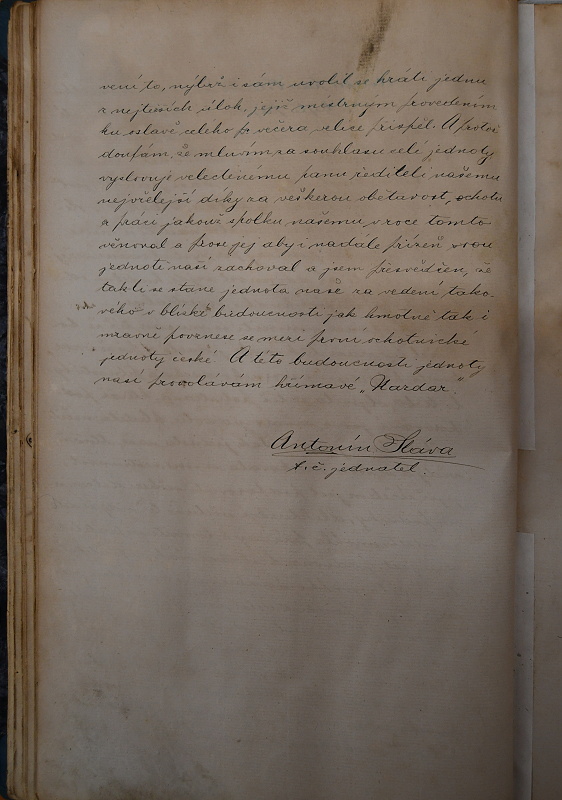 vení to, nýbrž i sám uvolil se hráti jednu
z nejtěších úloh, jejíž mistrným provedením
ku oslavě celého večera velice přispěl. A protož
doufám, že mluvím za souhlasu celé jednoty
vyslovuje velectěnému panu řediteli našemu
nejvřelejší díky za veškerou obětavost, ochotu
a práci jakouž spolku našemu v roce tomto
věnoval a prose jej aby i nadále přízeň svou
jednotě naší zachoval a jsem přesvědčen, že
takto se stane jednota naše za vedení tako-
vého v blízké budoucnosti jak hmotně tak i
mravně povznese se mezi první ochotnické
jednoty české A této budoucnosti jednoty
naší provolávám hřímavé „Nazdar".
Antonín Sláva
t.č. jednatel.